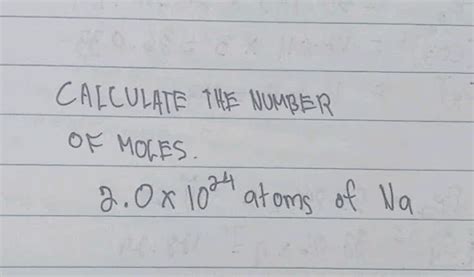 CALCULATE THE NUMBER
OF MOLES.
2.0 x 10²⁴ atoms of Na